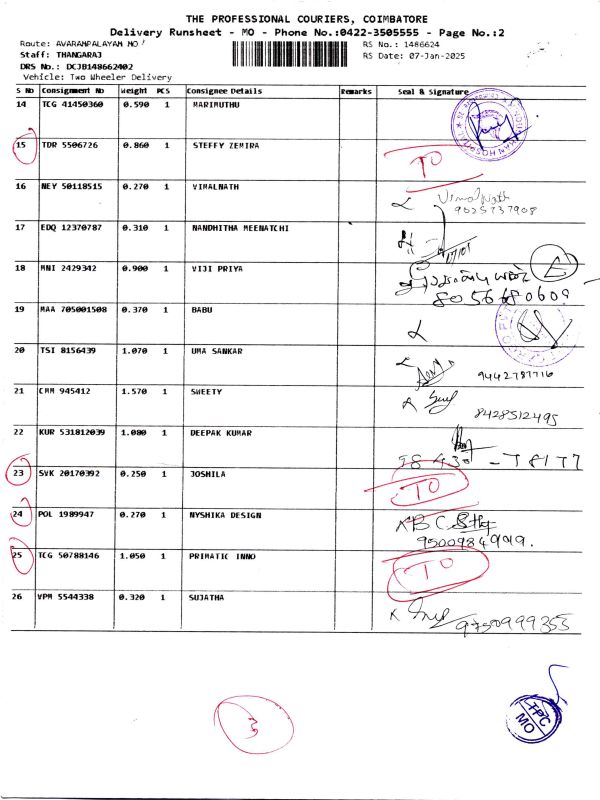 THE PROFESSIONAL COURIERS, COIMBATORE
Delivery Runsheet - MO - Phone No.:0422-3505555 - Page No.:2
Route: AVARAMPALAYAM MO
RS No.: 1486624
Staff: THANGARAJ
RS Date: 07-Jan-2025
DRS No.: DCJB148662402
Vehicle: Two Wheeler Delivery
S No Consignment No Weight PCS Consignee Details Remarks Seal & Signature
14 TCG 41450360 0.590 1 MARIMUTHU
15 TDR 5506726 0.860 1 STEFFY ZEMIRA TO
16 NEY 50118515 0.270 1 VIMALNATH Vimalnath
9025737908
17 EDQ 12370787 0.310 1 NANDHITHA MEENATCHI
18 MNI 2429342 0.900 1 VIJI PRIYA
8056680609
19 MAA 705001508 0.370 1 BABU
20 TSI 8156439 1.070 1 UMA SANKAR
9442787716
21 CMM 945412 1.570 1 SWEETY
8428512495
22 KUR 531812039 1.080 1 DEEPAK KUMAR
98430 - T8177
23 SVK 20170392 0.250 1 JOSHILA TO
24 POL 1989947 0.270 1 NYSHIKA DESIGN
9500984949.
25 TCG 50788146 1.050 1 PRIMATIC INNO TO
26 VPM 5544338 0.320 1 SUJATHA
9750999355
3
TPC
MO